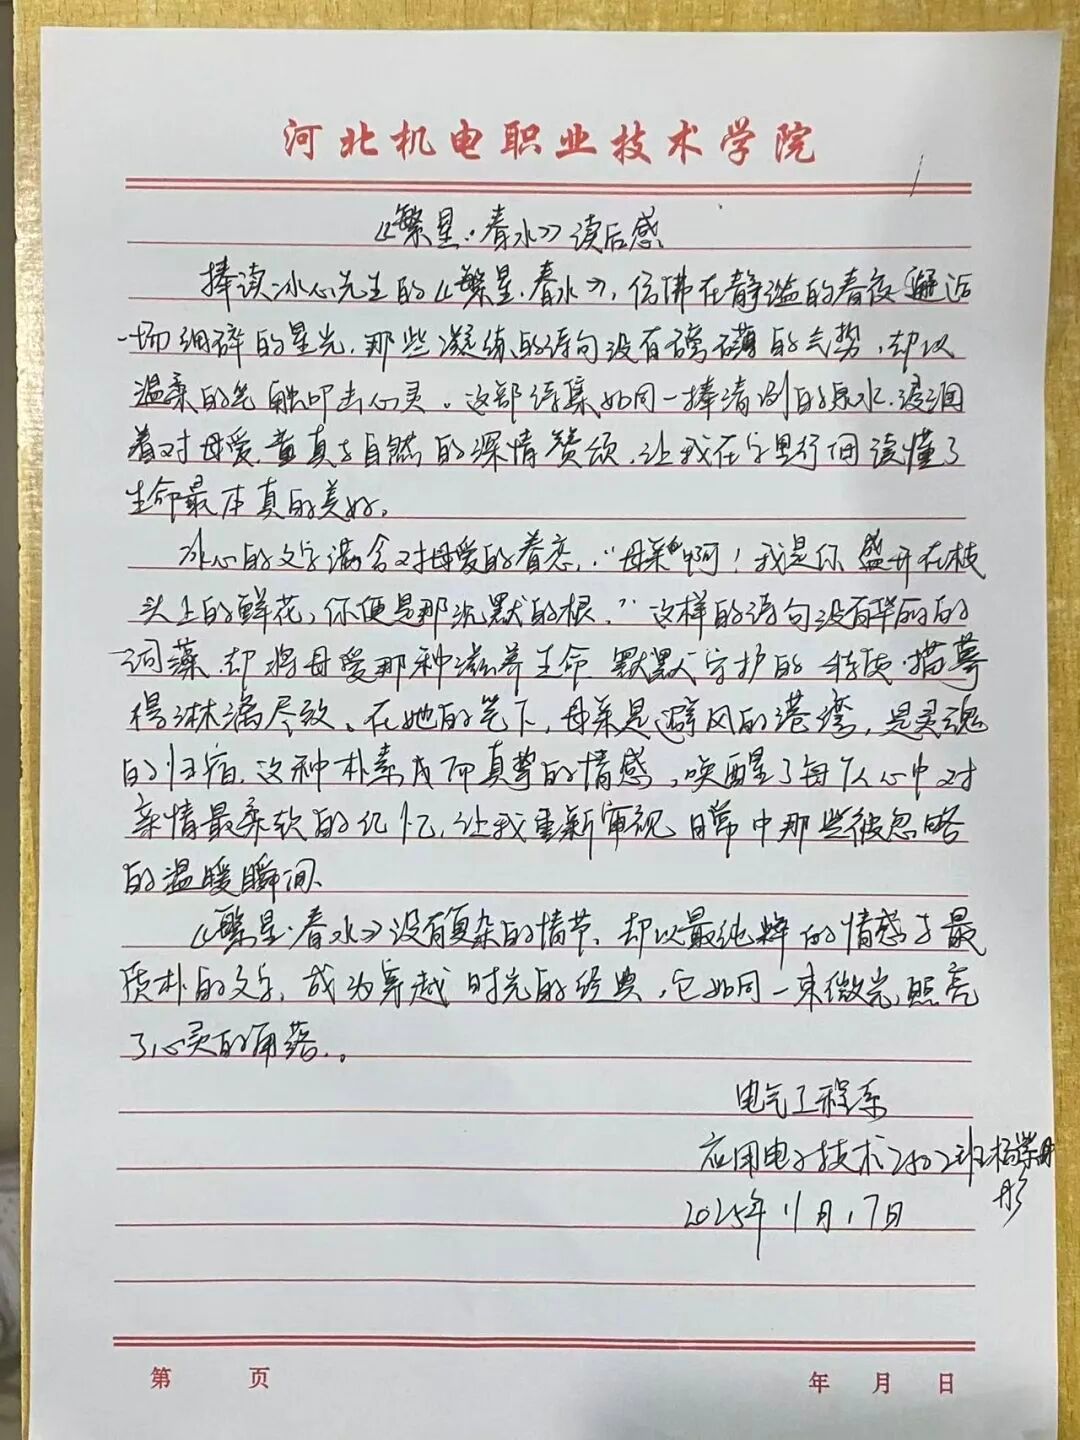 河北机电职业技术学院
《繁星·春水》读后感
捧读冰心先生的《繁星·春水》，仿佛在静谧的春夜邂逅
一场细碎的星光，那些凝练的诗句没有磅礴的气势，却以
温柔的笔触叩击心灵。这部诗集如同一捧清冽的泉水，浸润
着对母爱、童真与自然的深情赞颂，让我在字里行间读懂了
生命最本真的美好。
冰心的文字满含对母爱的眷恋，“母亲啊！我是你盛开在枝
头上的鲜花，你便是那沉默的根。”这样的诗句没有华丽的
词藻，却将母爱那种滋养生命、默默守护的特质，描摹
得淋漓尽致。在她的笔下，母亲是避风的港湾，是灵魂
的归宿，这种朴素而真挚的情感，唤醒了每个人心中对
亲情最柔软的记忆，让我重新审视日常中那些被忽略
的温暖瞬间、
《繁星·春水》没有复杂的情节，却以最纯粹的情感与最
质朴的文字，成为穿越时光的经典，它如同一束微光，照亮
了心灵的角落。
电气工程系
应用电子技术2502班
2025年11月17日
第 页 年 月 日